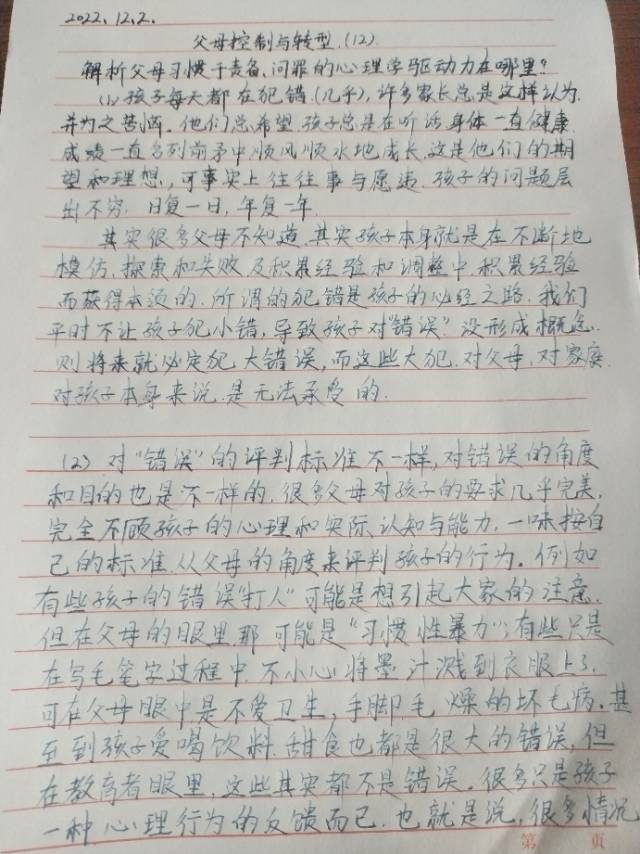 2022.12.2.
父母控制与转型.(12)
解析父母习惯于责备、问罪的心理学驱动力在哪里?
(1)孩子每天都在犯错(几乎),许多家长总是这样认为.
并为之苦恼。他们总希望孩子总是在听话.身体一直健康.
成绩一直名列前矛中顺风顺水地成长.这是他们的期
望和理想,可事实上往往事与愿违.孩子的问题层
出不穷.日复一日,年复一年.
其实很多父母不知道.其实孩子本身就是在不断地
模仿.探索和失败及积累经验和调整中.积累经验
而获得本领的.所谓的犯错是孩子的必经之路.我们
平时不让孩子犯小错,导致孩子对"错误"没形成概念.
则将来就必定犯大错误,而这些大犯.对父母.对家庭
对孩子本身来说.是无法承受的.
(2)对"错误"的评判标准不一样,对错误的角度
和目的也是不一样的.很多父母对孩子的要求几乎完美,
完全不顾孩子的心理和实际、认知与能力,一味按自
己的标准.从父母的角度来评判孩子的行为。例如
有些孩子的错误"打人"可能是想引起大家的注意.
但在父母的眼里.那可能是"习惯性暴力";有些只是
在写毛笔字过程中.不小心将墨汁溅到衣服上了.
可在父母眼中是不爱卫生,手脚毛燥的坏毛病.甚
至到孩子爱喝饮料.甜食也都是很大的错误,但
在教育者眼里,这些其实都不是错误。很多只是孩子
一种心理行为的反馈而已.也就是说,很多情况
第 页